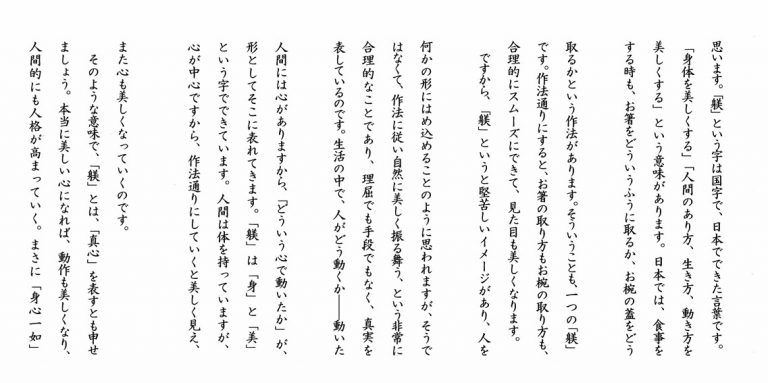 思います。「躾」という字は国字で、日本でできた言葉です。
「身体を美しくする」「人間のあり方、生き方、動き方を
美しくする」という意味があります。日本では、食事を
する時も、お箸をどういうふうに取るか、お椀の蓋をどう
取るかという作法があります。そういうことも、一つの「躾」
です。作法通りにすると、お箸の取り方もお椀の取り方も、
合理的にスムーズにできて、見た目も美しくなります。
ですから、「躾」というと堅苦しいイメージがあり、人を
何かの形にはめ込めることのように思われますが、そうで
はなくて、作法に従い自然に美しく振る舞う、という非常に
合理的なことであり、理屈でも手段でもなく、真実を
表しているのです。生活の中で、人がどう動くか――動いた
人間には心がありますから、「どういう心で動いたか」が、
形としてそこに表れてきます。「躾」は「身」と「美」
という字でできています。人間は体を持っていますが、
心が中心ですから、作法通りにしていくと美しく見え、
また心も美しくなっていくのです。
そのような意味で、「躾」とは、「真心」を表すとも申せ
ましょう。本当に美しい心になれば、動作も美しくなり、
人間的にも人格が高まっていく。まさに「身心一如」